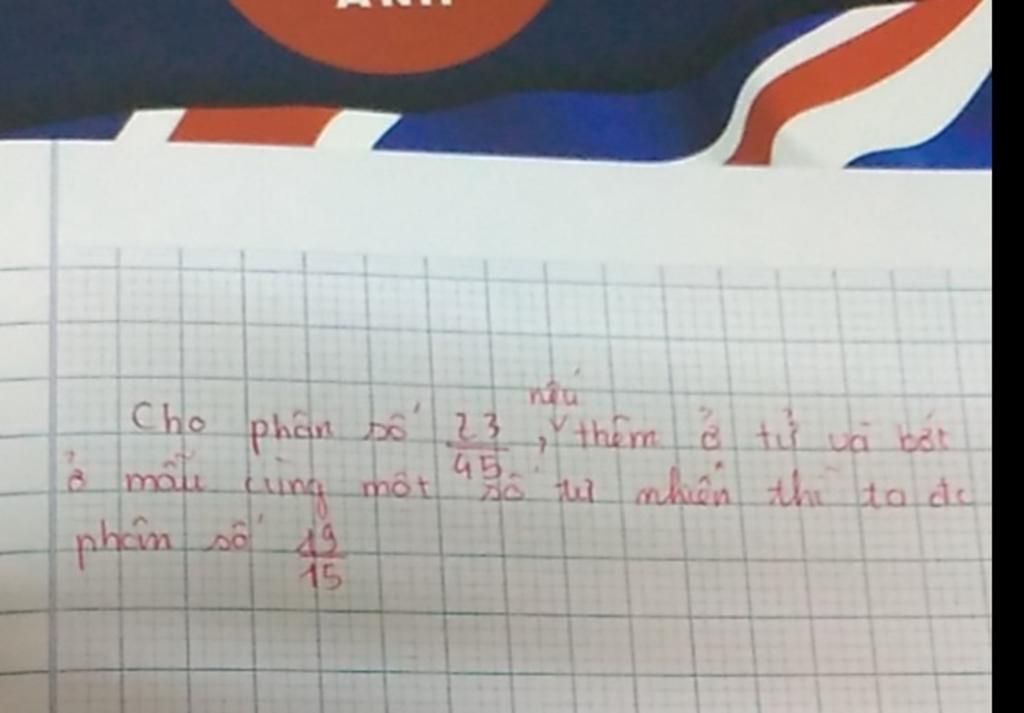 ANH
nếu
Cho phân số 23/45, thêm ở tử và bớt
ở mẫu cùng một số tự nhiên thì ta đc
phân số 19/15